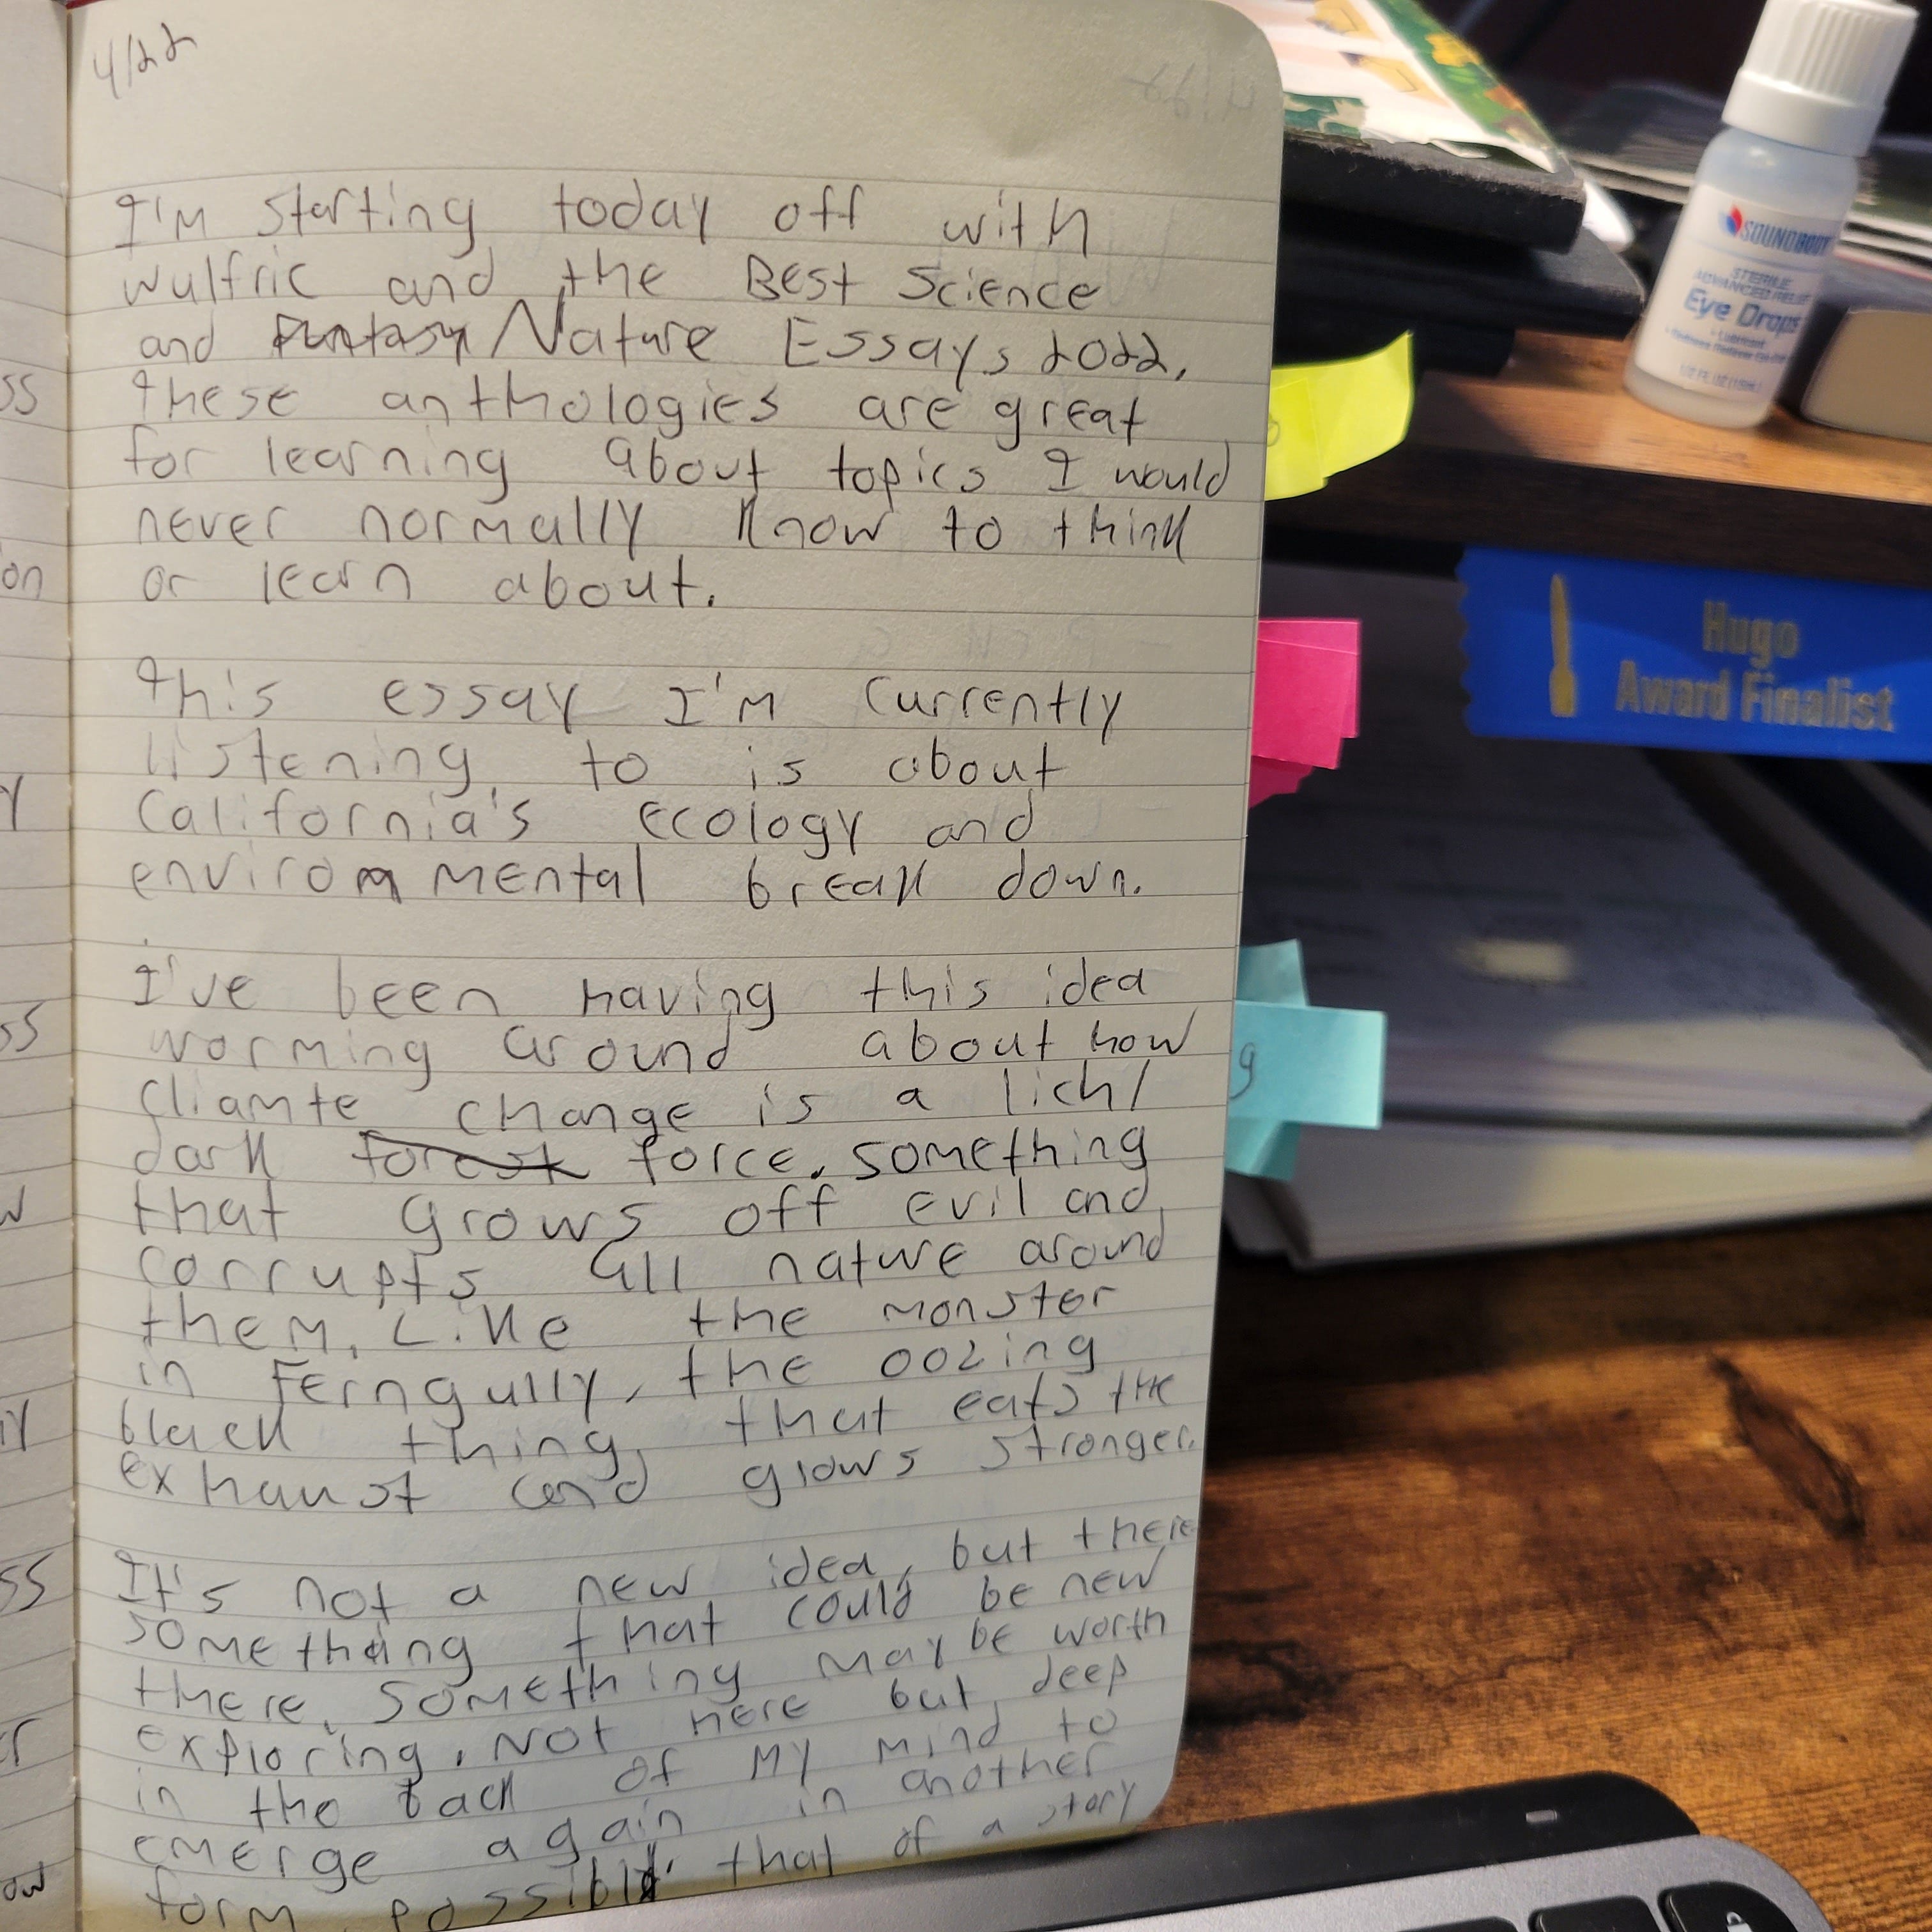 4/22
I'm starting today off with
wulfric and the Best Science
and Fantasy Nature Essays 2022.
These anthologies are great
for learning about topics I would
never normally know to think
or learn about.
This essay I'm currently
listening to is about
California's ecology and
enviromental break down.
I've been having this idea
worming around about how
cliamte change is a lich/
dark forest force. something
that grows off evil and
corrupts all nature around
them. Like the monster
in Ferngully, the oozing
black thing that eats the
exhaust and grows stronger.
It's not a new idea, but there
something that could be new
there. Something maybe worth
exploring. Not here but deep
in the back of my mind to
emerge again in another
form possibly that of a story
SS
on
y
SS
w
SS
ow
9
SOUNDBODY
STERILE
ADVANCED RELIEF
Eye Drops
Lubricant
1/2 FL OZ (15mL)
Hugo
Award Finalist